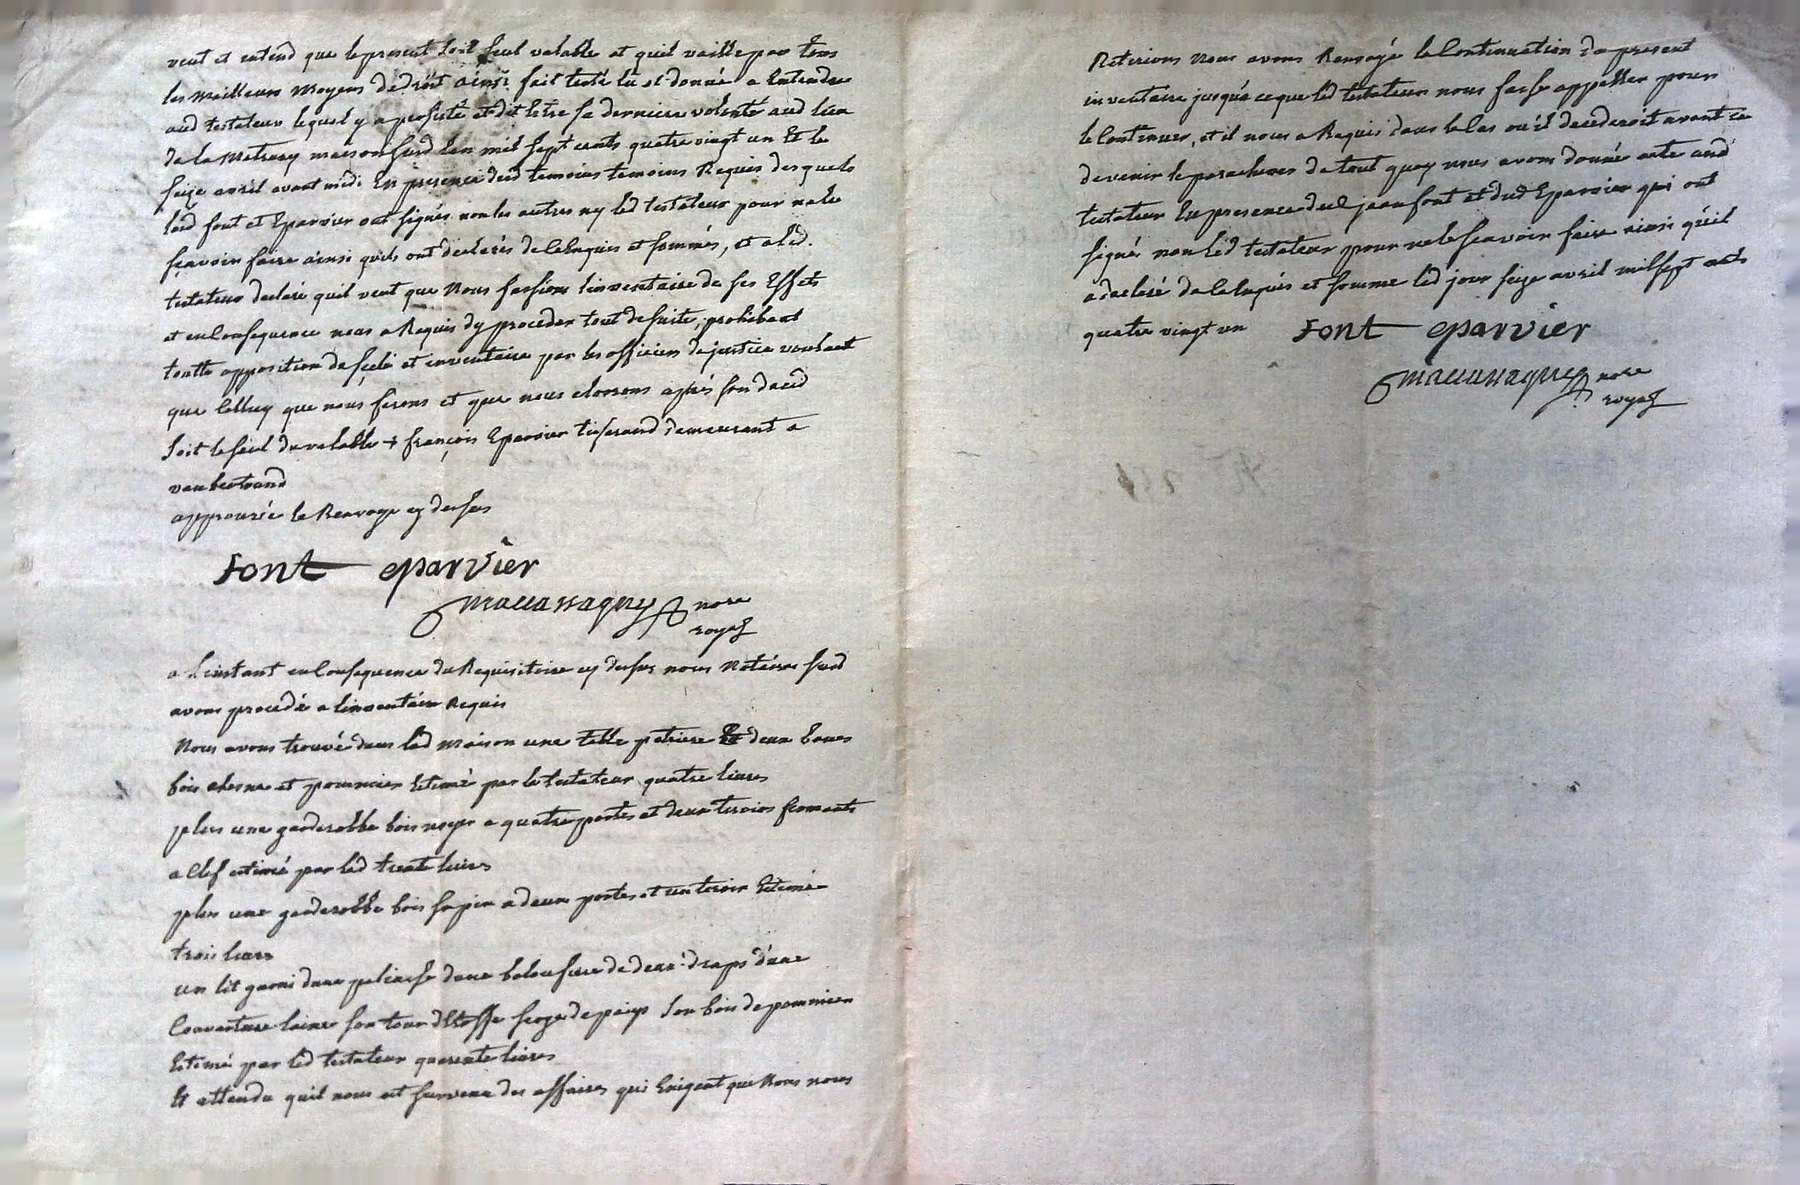 veut et entend que le present soit seul valable et quil vaille par tous
les meilleurs moyens de droit ainsi fait testé lu et donné a entendre
aud testateur lequel y a persisté et dit etre sa derniere volonté aud lieu
de la maison susd lan mil sept cents quatre vingt un et le
seize avril avant midi En presence desd temoins temoins Requis desquels
led font et Eparvier ont signés non les autres ny led testateur pour ne le
scavoir faire ainsi quils ont declarés de ce Enquis et sommés, et a led.
testateur declaré quil veut que Nous fassions linventaire de ses Effets
et en Consequence nous a Requis dy proceder tout de suite, prohibant
toutte opposition de scelé et inventaire par les officiers de justice voulant
que Celluy que nous ferons et que nous clorrons après son deced
soit le seul de valable + françois Eparvier tisserand demeurant a
approuvé le Renvoye cy dessus
Font eparvier
nore
royal
a linstant en Consequence du Requisitoire cy dessus nous Notaire susd
avons procedé a linventaire Requis
Nous avons trouvé dans lad maison une table petriere Et deux bancs
bois chesne et pommier Estimé par le testateur quatre livres
plus une garderobbe bois noyer a quatre portes et deux tiroirs fermants
a Clef estimé par led trente livres
plus une garderobbe bois sapin a deux portes et un tiroir Estimé
trois livres
un lit garni dune paliasse dune de deux draps d'une
Couverture laine son tour d'Etoffe serge de pays son bois de pommier
Estimé par led testateur quarente livres
Et attendu quil nous est survenu des affaires qui Exigent que Nous nous
Retirions Nous avons Renvoyé la Continuation du present
inventaire jusqu'a ce que led testateur nous fasse appeller pour
le Continuer, et il nous a Requis dans le Cas ou il decederoit avant ce
de venir le parachever de tout quoy nous avons donné acte aud
testateur En presence dud jean font et dud Eparvier qui ont
signés non led testateur pour ne le scavoir faire ainsi qu'il
a declaré de ce Enquis et sommé led jour seize avril mil sept cents
quatre vingt un Font eparvier
nore
royal